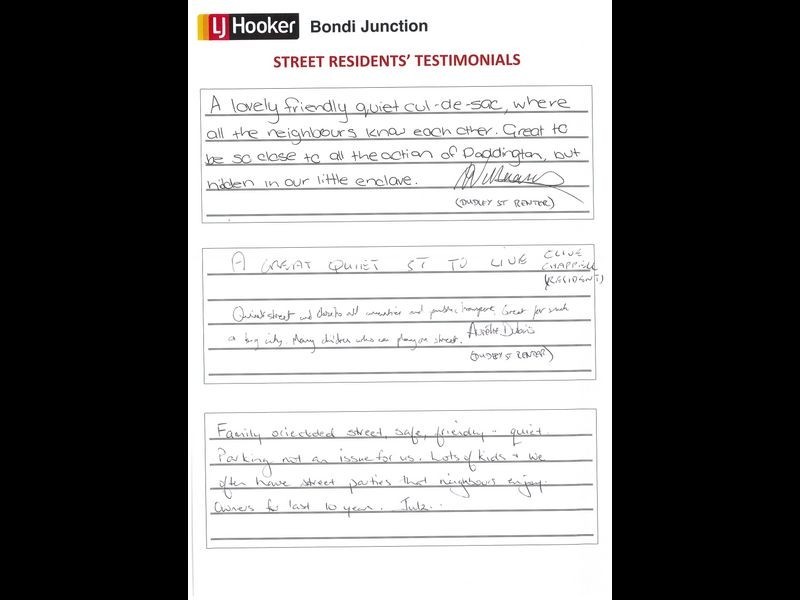 LJ Hooker Bondi Junction
STREET RESIDENTS' TESTIMONIALS
A lovely friendly quiet cul-de-sac, where
all the neighbours know each other. Great to
be so close to all the action of Paddington, but
hidden in our little enclave.
(DUDLEY ST RENTER)
A GREAT QUIET ST TO LIVE CLIVE
CHAPPELL
(RESIDENT)
Quiet street and close to all amenities and public transport. Great for such
a big city. Many children who can play on street.
(DUDLEY ST RENTER)
Family orientated street, safe, friendly + quiet.
Parking not an issue for us. Lots of kids + we
often have street parties that neighbours enjoy.
Owners for last 10 years.